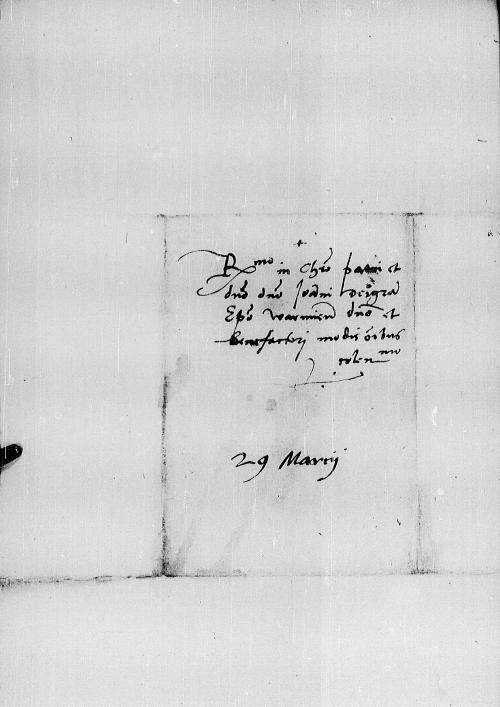 +
Rmo in Chro patri et
dno dno Joanni dei gra
Epo Warmien dno et
benefactori modis oibus
colenmo
29 Marcij